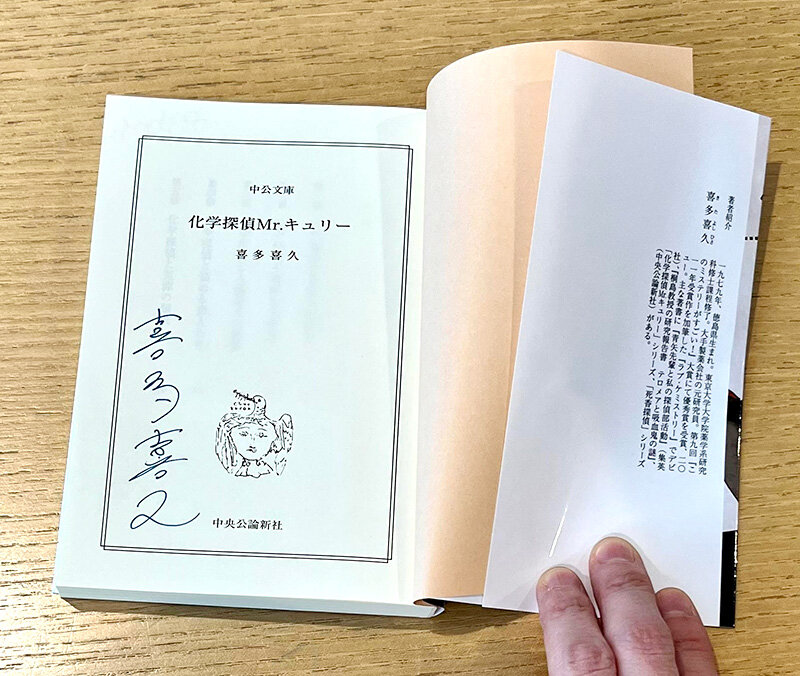 中公文庫
化学探偵Mr.キュリー
喜多喜久
中央公論新社
喜多喜久
著者紹介
きたよしひさ
喜多喜久
一九七九年、徳島県生まれ。東京大学大学院薬学系研究
科修士課程修了。大手製薬会社の元研究員。第九回『こ
のミステリーがすごい！』大賞にて優秀賞を受賞、二〇
一一年受賞作を加筆した『ラブ・ケミストリー』でデビ
ュー。主な著書に『青矢先輩と私の探偵部活動』（集英
社）、『桐島教授の研究報告書　テロメアと吸血鬼の謎』、
「化学探偵Mr.キュリー」シリーズ、「死香探偵」シリーズ
（中央公論新社）がある。